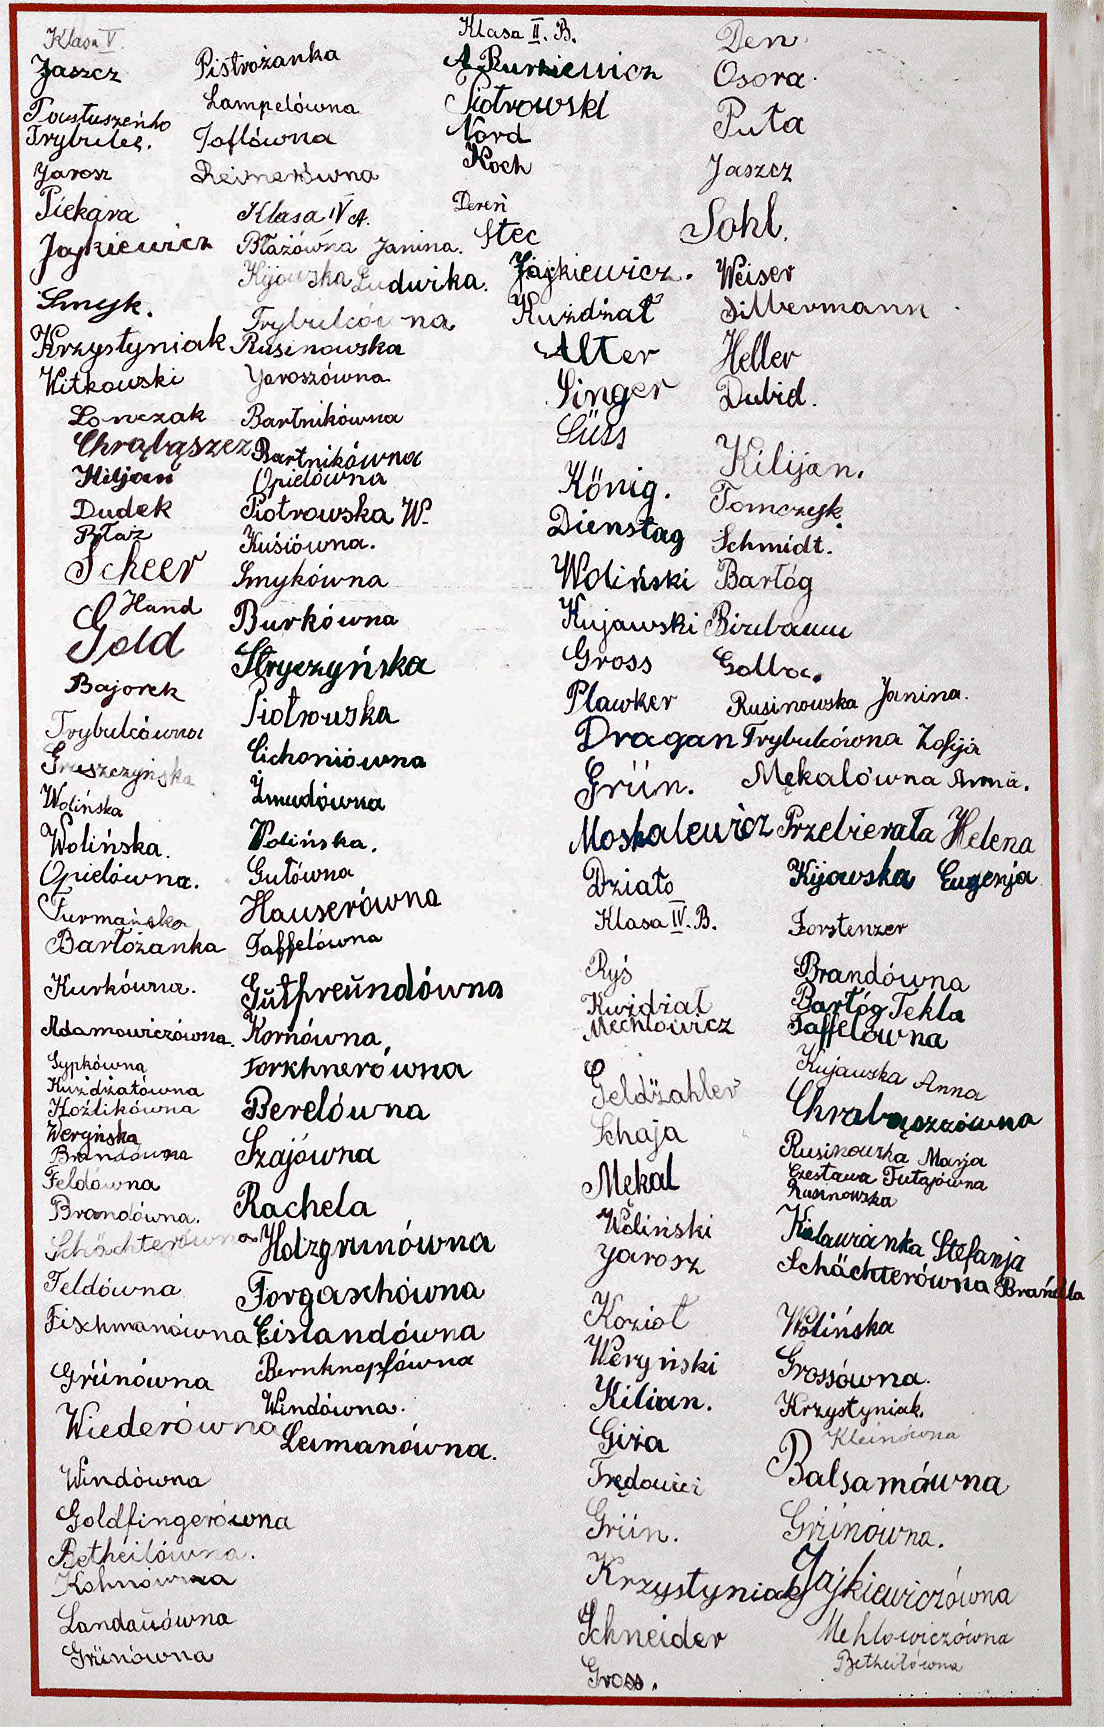 Klasa V.
Jaszcz
Trybulec.
Jarosz
Piekara
Jajkiewicz
Smyk.
Krzystyniak
Witkowski
Lonczak
Chrabąszcz
Kiljan
Dudek
Błaż
Scheer
Hand
Gold
Bajorek
Trybulcówna
Gruszczyńska
Wolińska
Wolińska.
Opielówna.
Furmańska
Bartożanka
Kurkówna.
Adamowiczówna.
Sypkówna
Kuźdźałówna
Koźlikówna
Weryńska
Brandówna
Feldówna
Brandówna.
Schächterówna
Feldówna
Fischmanówna
Grünówna
Wiederówna
Windówna
Goldfingerówna
Betheilówna.
Kohnówna
Landauówna
Grünówna
Pistrożanka
Lampelówna
Toflówna
Reinerówna
Klasa IV A.
Błażówna Janina.
Kijowska Ludwika.
Trybulcówna
Rusinowska
Jaroszówna
Bartnikówna
Bartnikówna
Opielówna
Piotrowska W.
Kusiówna.
Smykówna
Burkówna
Stryczyńska
Piotrowska
Cichoniówna
Żmudówna
Wolińska.
Gutówna
Hauserówna
Taffelówna
Gutfreundówna
Kornówna
Forkhnerówna
Berelówna
Szajówna
Rachela
Holzgrunówna
Torgaschówna
Eislandówna
Bernknopfówna
Windówna.
Leimanówna.
Klasa II. B.
A Burkiewicz
Piotrowski
Nord
Koch
Dereń
Stec
Jajkiewicz.
Kuźdźał
Alter
Singer
Süss
König.
Dienstag
Woliński
Kujawski
Gross
Plawker
Dragan
Grün.
Moskalewicz
Działo
Klasa IV. B.
Ryś
Kuźdźał
Mechlowicz
Geldzahler
Schaja
Mękal
Woliński
Jarosz
Kozioł
Weryński
Kilian.
Giża
Trędowicz
Grün.
Krzystyniak
Schneider
Gross.
Den
Osora.
Puta
Jaszcz
Sohl.
Weiser
Silbermann
Heller
Dubid.
Kilijan.
Tomczyk.
Schmidt.
Bartóg
Birnbaum
Rusinowska Janina.
Trybulcówna Zofija
Mękalówna Anna.
Przebierała Helena
Kijowska Eugenja
Forstenzer
Brandówna
Bartóg Tekla
Taffelówna
Kujawska Anna
Chrabąszczówna
Rusinowska Marja
Czesława Tutajówna
Rusinowska
Kolawianka Stefanja
Schächterówna Brańdla
Wolińska
Grossówna.
Krzystyniak.
Kleinówna
Balsamówna
Grünówna.
Jajkiewiczówna
Mehlowiczówna
Betheilówna